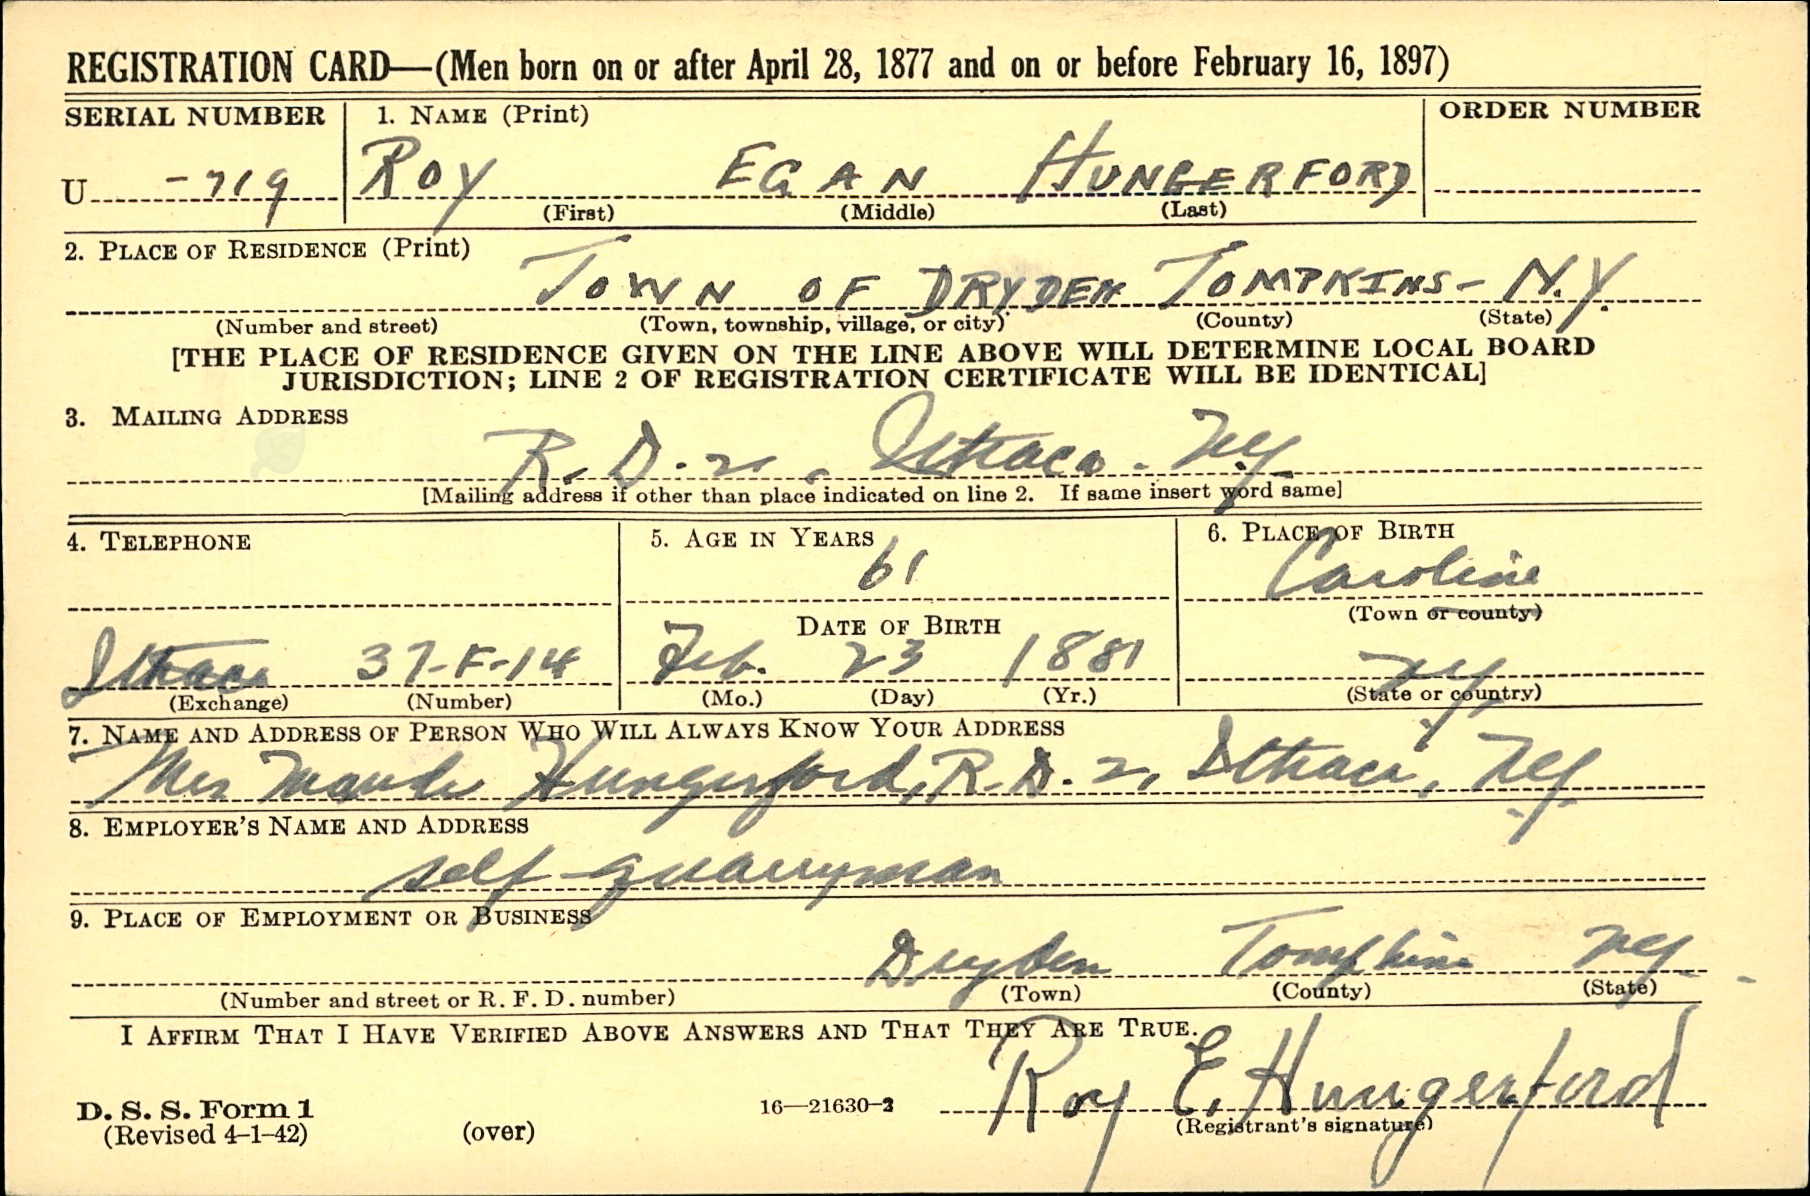 REGISTRATION CARD—(Men born on or after April 28, 1877 and on or before February 16, 1897)
SERIAL NUMBER 1. NAME (Print) ORDER NUMBER
U -719 ROY EGAN HUNGERFORD
(First) (Middle) (Last)
2. PLACE OF RESIDENCE (Print)
TOWN OF DRYDEN TOMPKINS- N.Y.
(Number and street) (Town, township, village, or city) (County) (State)
[THE PLACE OF RESIDENCE GIVEN ON THE LINE ABOVE WILL DETERMINE LOCAL BOARD
JURISDICTION; LINE 2 OF REGISTRATION CERTIFICATE WILL BE IDENTICAL]
3. MAILING ADDRESS
R.D.2, Ithaca. N.Y.
[Mailing address if other than place indicated on line 2. If same insert word same]
4. TELEPHONE 5. AGE IN YEARS 6. PLACE OF BIRTH
61 Caroline
DATE OF BIRTH (Town or county)
Ithaca 37-F-14 Feb. 23 1881 N.Y.
(Exchange) (Number) (Mo.) (Day) (Yr.) (State or country)
7. NAME AND ADDRESS OF PERSON WHO WILL ALWAYS KNOW YOUR ADDRESS
Mrs Maude Hungerford, R.D. 2, Ithaca, N.Y.
8. EMPLOYER'S NAME AND ADDRESS
self-quarryman
9. PLACE OF EMPLOYMENT OR BUSINESS
Dryden Tompkins N.Y.
(Number and street or R. F. D. number) (Town) (County) (State)
I AFFIRM THAT I HAVE VERIFIED ABOVE ANSWERS AND THAT THEY ARE TRUE.
Roy E. Hungerford
D. S. S. Form 1 16—21630-2
(Revised 4-1-42) (over) (Registrant's signature)